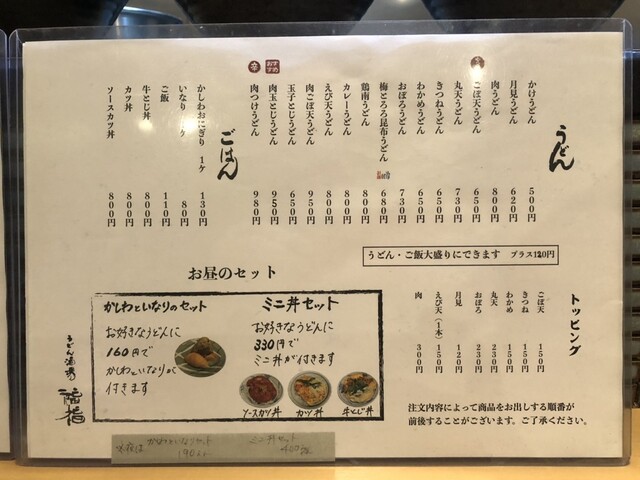 うどん
かけうどん 500円
月見うどん 620円
肉うどん 800円
ごぼ天うどん 650円
丸天うどん 730円
きつねうどん 650円
わかめうどん 650円
おぼろうどん 730円
梅とろろ昆布うどん 680円
鶏南うどん 800円
カレーうどん 800円
えび天うどん 800円
肉ごぼ天うどん 950円
玉子とじうどん 650円
おすすめ
肉玉とじうどん 950円
辛
肉つけうどん 980円
ごはん
かしわおにぎり 1ケ 130円
いなり 1ケ 80円
ご飯 110円
牛とじ丼 800円
カツ丼 800円
ソースカツ丼 800円
うどん・ご飯大盛りにできます プラス120円
トッピング
ごぼ天 150円
きつね 150円
わかめ 150円
丸天 230円
おぼろ 230円
月見 120円
えび天(1本) 150円
肉 300円
お昼のセット
ミニ丼セット
お好きなうどんに
330円で
ミニ丼が付きます
ソースカツ丼 カツ丼 牛とじ丼
かしわといなりのセット
お好きなうどんに
160円で
かしわといなりが
付きます
注文内容によって商品をお出しする順番が
前後することがございます。ご了承ください。
うどん酒場
ミニ丼セット